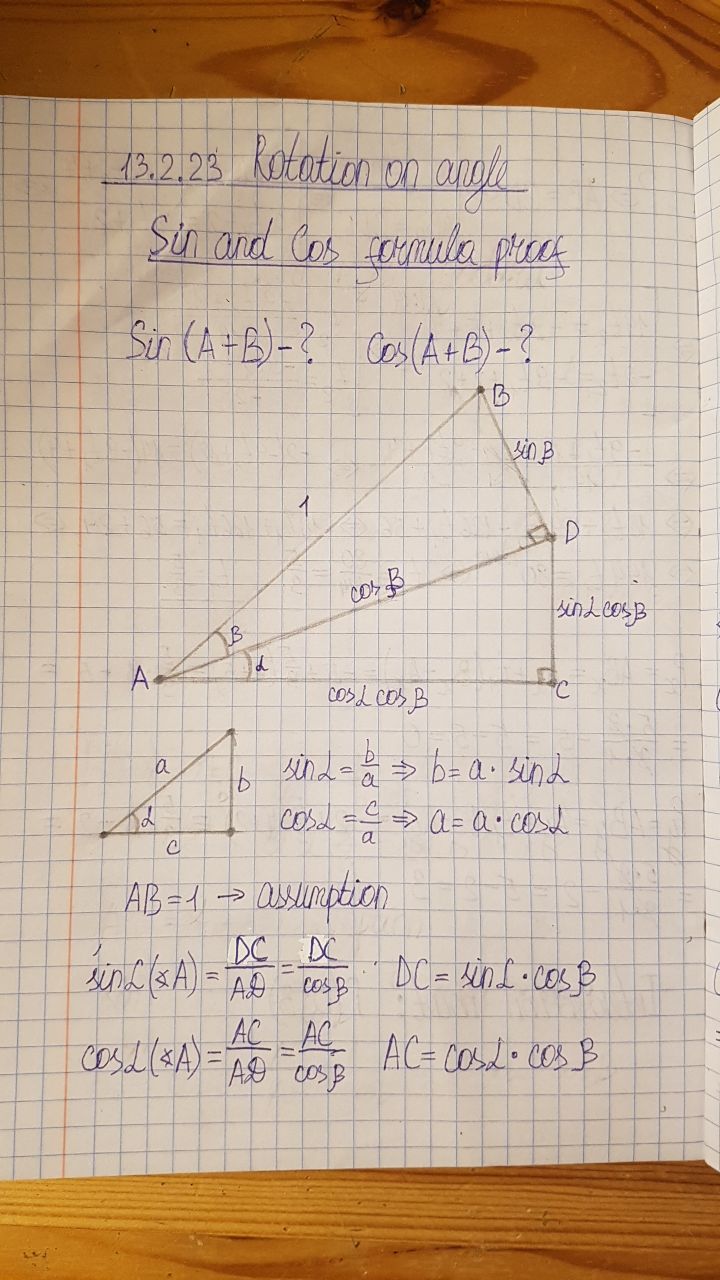 13.2.23 Rotation on angle
Sin and Cos formula proof
Sin (A+B)-? Cos(A+B)-?
B
sinβ
1
D
cosβ
sinα cosβ
β
α
A
C
cosα cosβ
a
b
α
c
sinα = b/a ⇒ b = a · sinα
cosα = c/a ⇒ a = a · cosα
AB = 1 → assumption
sinα(∡A) = DC/AD = DC/cosβ DC = sinα · cosβ
cosα(∡A) = AC/AD = AC/cosβ AC = cosα · cosβ